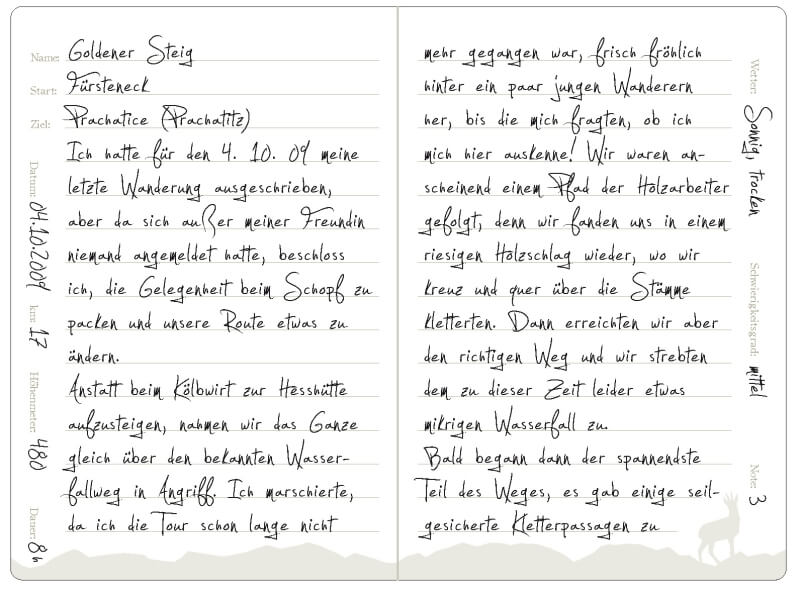 Name: Goldener Steig
Start: Fürsteneck
Ziel: Prachatice (Prachatitz)
Ich hatte für den 4. 10. 09 meine
letzte Wanderung ausgeschrieben,
aber da sich außer meiner Freundin
niemand angemeldet hatte, beschloss
ich, die Gelegenheit beim Schopf zu
packen und unsere Route etwas zu
ändern.
Anstatt beim Kölbwirt zur Hesshütte
aufzusteigen, nahmen wir das Ganze
gleich über den bekannten Wasser-
fallweg in Angriff. Ich marschierte,
da ich die Tour schon lange nicht
Datum: 04.10.2009
km: 17
Höhenmeter: 480
Dauer: 8h
mehr gegangen war, frisch fröhlich
hinter ein paar jungen Wanderern
her, bis die mich fragten, ob ich
mich hier auskenne! Wir waren an-
scheinend einem Pfad der Holzarbeiter
gefolgt, denn wir fanden uns in einem
riesigen Holzschlag wieder, wo wir
kreuz und quer über die Stämme
kletterten. Dann erreichten wir aber
den richtigen Weg und wir strebten
dem zu dieser Zeit leider etwas
mikrigen Wasserfall zu.
Bald begann dann der spannendste
Teil des Weges, es gab einige seil-
gesicherte Kletterpassagen zu
Wetter: Sonnig, trocken
Schwierigkeitsgrad: mittel
Note: 3